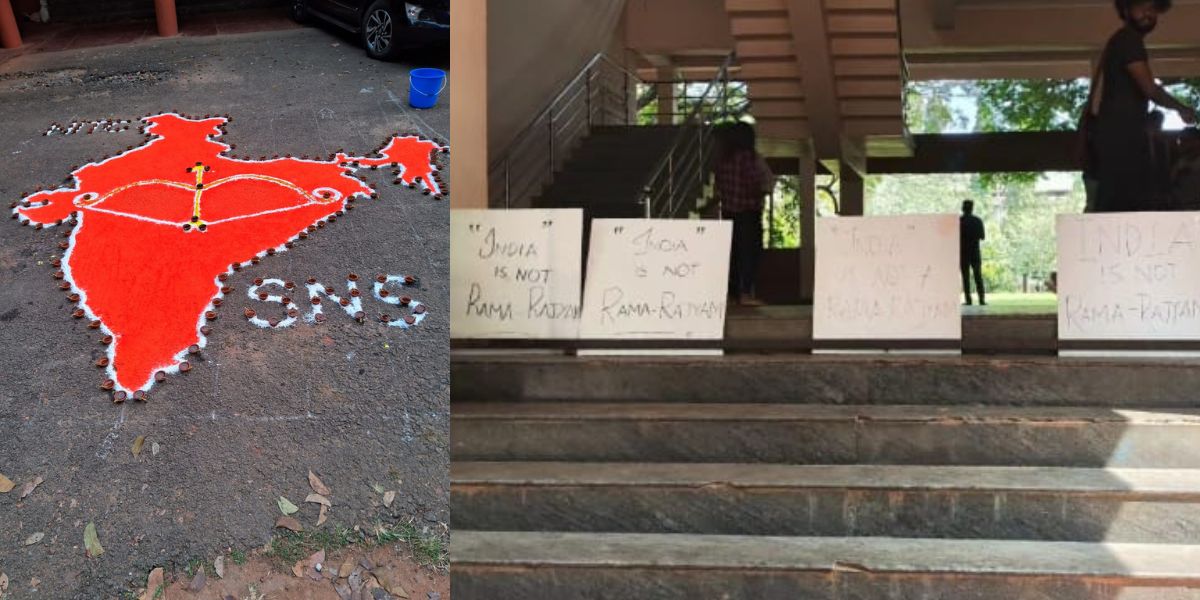 SNS
"INDIA"
IS NOT
RAMA-RAJYAM
"INDIA"
IS NOT
RAMA-RAJYAM
"INDIA"
IS NOT
RAMA-RAJYAM
INDIA
IS NOT
RAMA-RAJYAM